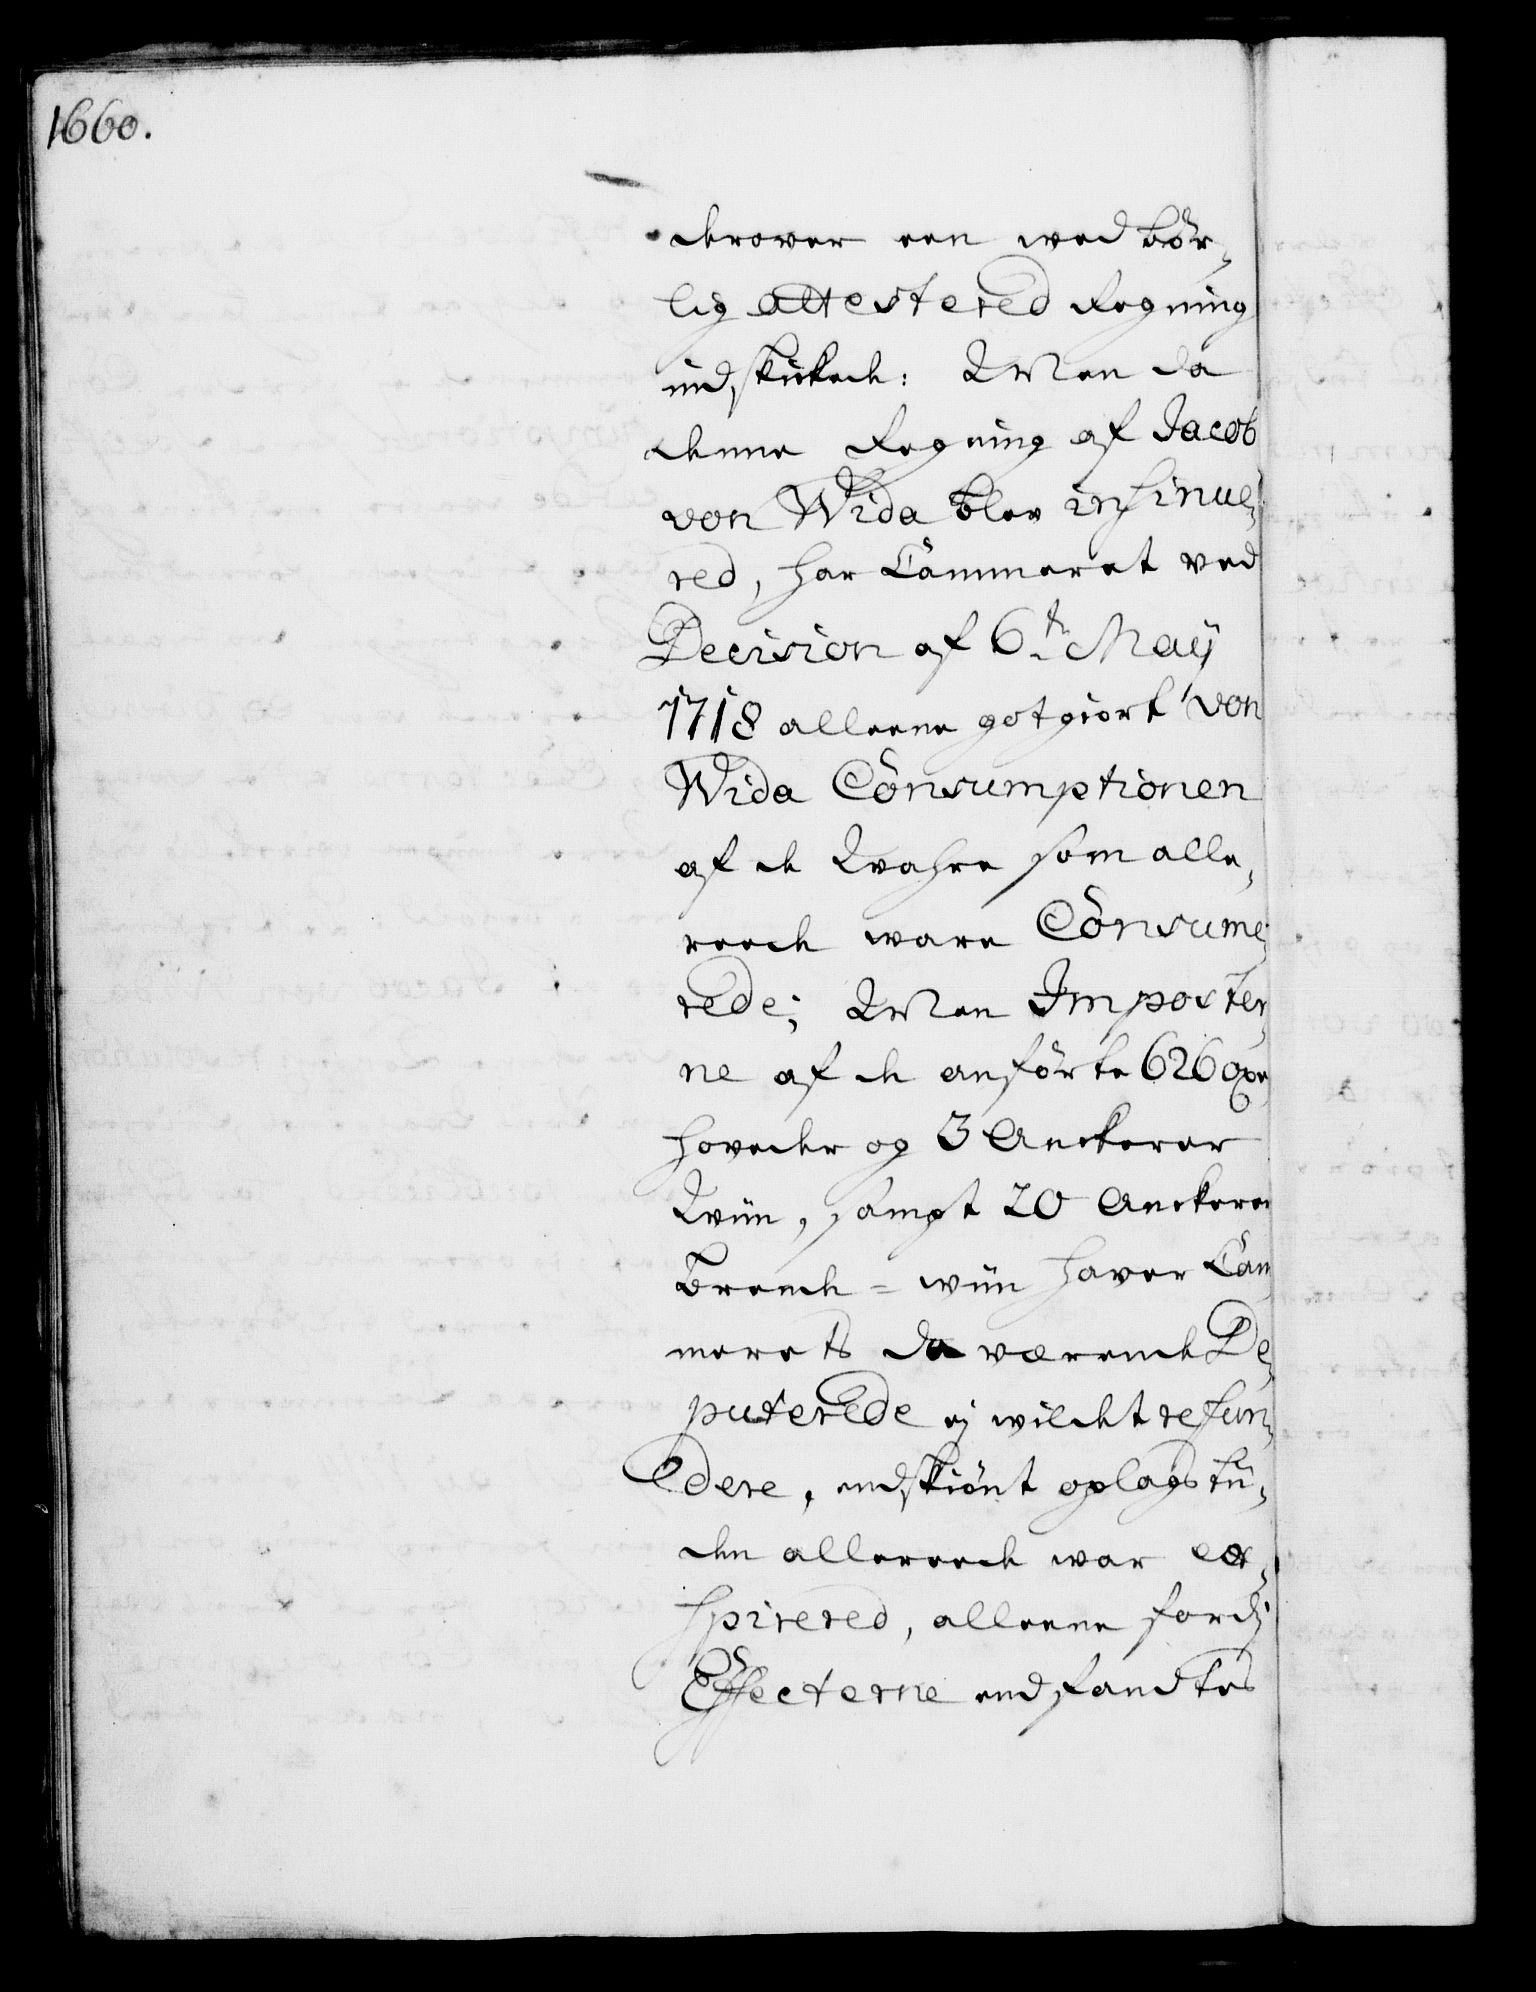 1660.
derover een wedbör-
lig attestered Regning
indskikede: Men da
denne Regning af Jacob
von Wida blev insinue-
red, har Cammeret ved
Decision af 6te May
1718 alleene gotgiort von
Wida Consumptionen
af de Wahre som alle-
reede ware Consume-
rede; Men Imposter-
ne af de anförte 626 oxe-
hoveder og 3 Anckerer
Wiin, sampt 20 Anckerer
Brende-wiin haver Cam-
merets da værende De-
puterede ej wildet refun-
dere, endskiönt oplagstii-
den allereede war ex-
spirered, alleene fordj
Effecterne endfandtes